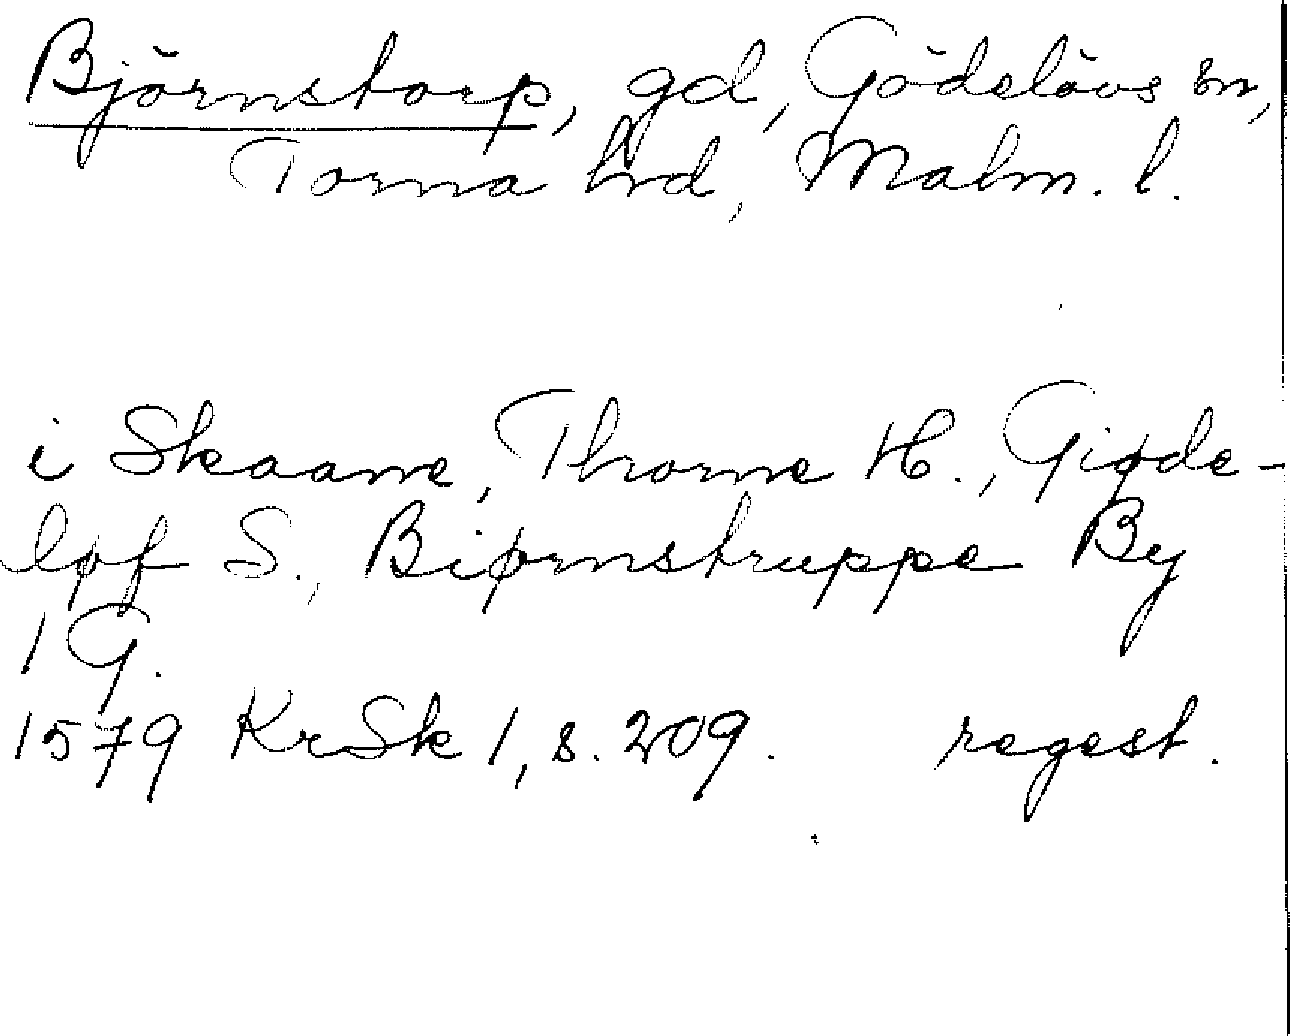 Björnstorp, gd, Gödelövs sn,
Torna hrd, Malm. l.
i Skaane, Thorne H., Giøde-
løf S., Biørnstruppe By
1 G.
1579 KrSk 1, s. 209. regest.